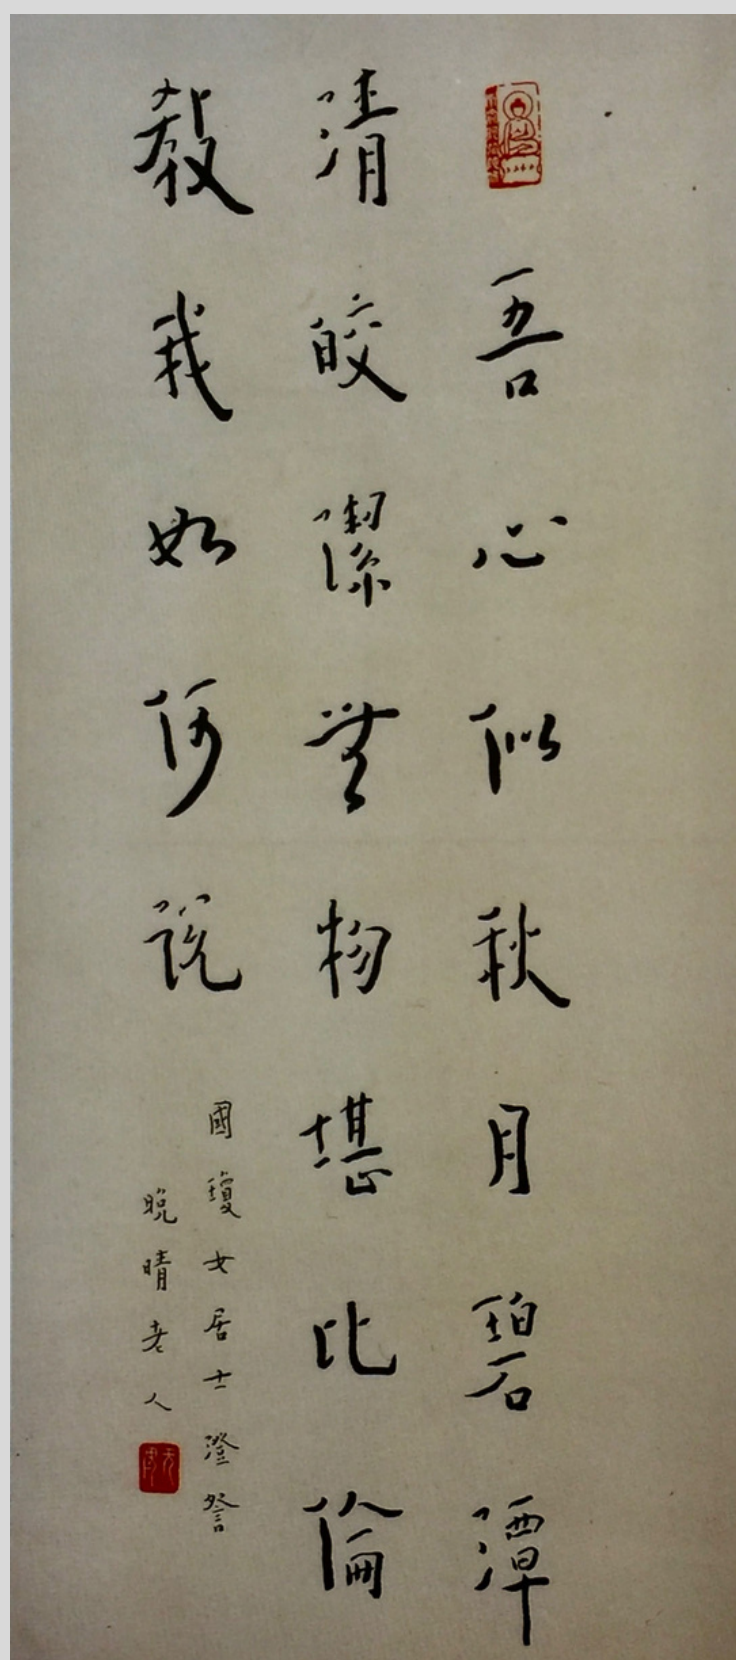 吾心似秋月碧潭
清皎潔無物堪比倫
教我如何說
國瓊女居士澄詧
晚晴老人